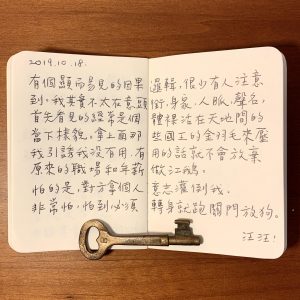 2019.10.18.
有個顯而易見的因果
到,我其實不太在意頭
首先看見的經常是個
當下樣貌,拿上面那
我引誘我沒有用,有
原來的職場和年薪
怕的是,對方拿個人
非常怕,怕到必須
邏輯,很少有人注意
銜、身家、人脈、聲名,
體得活在天地間的
些國王的金羽毛來壓
用的話就不會放棄
做江鵝。
意志灌倒我。
轉身就跑關門放狗。
汪汪!